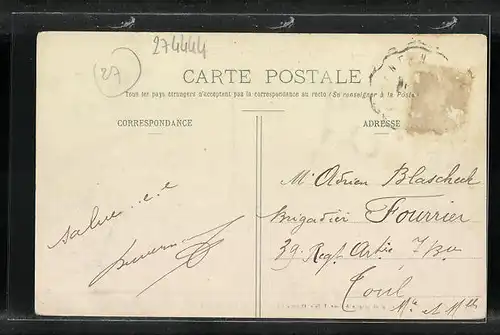 274444
27
CARTE POSTALE
Tous les pays étrangers n'acceptent pas la correspondance au recto (Se renseigner à la Poste)
CORRESPONDANCE
ADRESSE
Mr Adrien Blascheck
Brigadier Fourrier
39 Regt Artie
Toul
Mthe et Mlle
salue